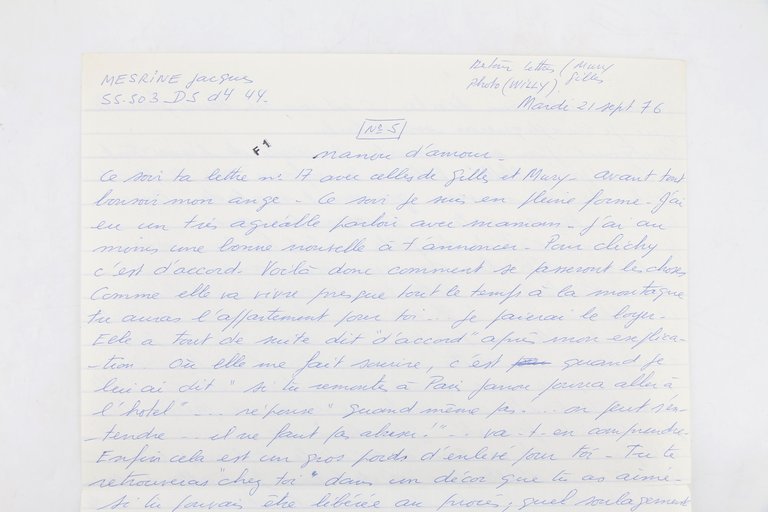 MESRINE Jacques
SS-503 DS d4 44-
Retour lettres (Mury
photo (WILLY), Gilles
Mardi 21 sept 76
No 5
F1
nanou d'amour -
Ce soir ta lettre no 17 avec celles de Gilles et Mury - avant tout
bonsoir mon ange - Ce soir je suis en pleine forme - J'ai
eu un très agréable parloir avec maman - j'ai au
moins une bonne nouvelle à t'annoncer - Pour clichy
c'est d'accord - Voilà donc comment se passeront les choses
Comme elle va vivre presque tout le temps à la montagne
tu auras l'appartement pour toi - je paierai le loyer -
Elle a tout de suite dit "d'accord" après mon explica-
-tion - Où elle me fait sourire, c'est quand je
lui ai dit " si tu remontes à Paris Janou pourra aller à
l'hotel" - ... réponse " quand même pas .... on peut s'en-
-tendre ... il ne faut pas abuser !" .. va-t-en comprendre -
Enfin cela est un gros poids d'enlevé pour toi - Tu te
retrouveras "chez toi" dans un décor que tu as aimé -
si tu pouvais être libérée au procès, quel soulagement